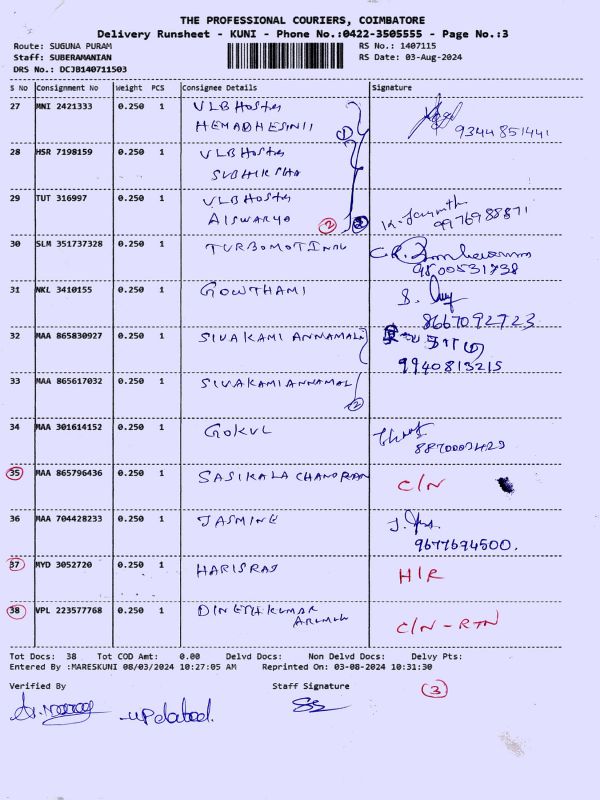 THE PROFESSIONAL COURIERS, COIMBATORE
Delivery Runsheet - KUNI - Phone No.:0422-3505555 - Page No.:3
Route: SUGUNA PURAM RS No.: 1407115
Staff: SUBERAMANIAN RS Date: 03-Aug-2024
DRS No.: DCJB140711503
S No Consignment No Weight PCS Consignee Details Signature
27 MNI 2421333 0.250 1 VLB Hostey
HEMADHESINII 9344851441
1
28 HSR 7198159 0.250 1 VLB Hostey
SUBHIKSHA
29 TUT 316997 0.250 1 VLB Hostey
AISWARYA 2 2 9976988871
30 SLM 351737328 0.250 1 TURBOMOTINDU
9500531738
31 NKL 3410155 0.250 1 GOWTHAMI S.
8667092723
32 MAA 865830927 0.250 1 SIVAKAMI ANNAMAL
9940813215
33 MAA 865617032 0.250 1 SIVAKAMI ANNAMAL
2
34 MAA 301614152 0.250 1 GOKUL
35 MAA 865796436 0.250 1 SASIKALA CHANDRAN C/N
36 MAA 704428233 0.250 1 JASMINE J.
9677694500.
37 MYD 3052720 0.250 1 HARISRAJ H/R
38 VPL 223577768 0.250 1 DINETHKUMAR
C/N - RTN
Tot Docs: 38 Tot COD Amt: 0.00 Delvd Docs: Non Delvd Docs: Delvy Pts:
Entered By :MARESKUNI 08/03/2024 10:27:05 AM Reprinted On: 03-08-2024 10:31:30
Verified By Staff Signature 3
updated.